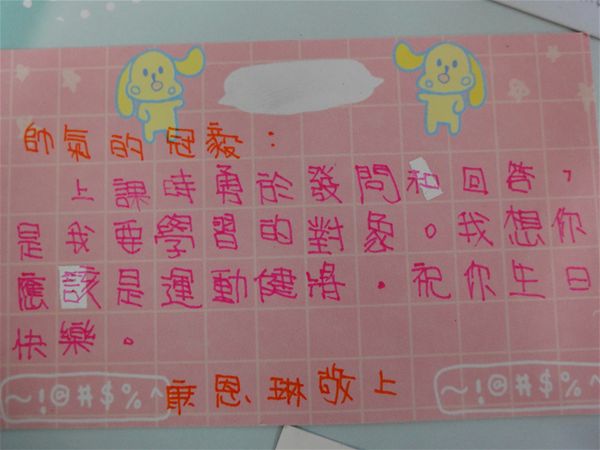 帥氣的冠毅：
上課時勇於發問和回答，
是我要學習的對象。我想你
應該是運動健將。祝你生日
快樂。
~!@#$%^
康恩琳敬上
~!@#$%^